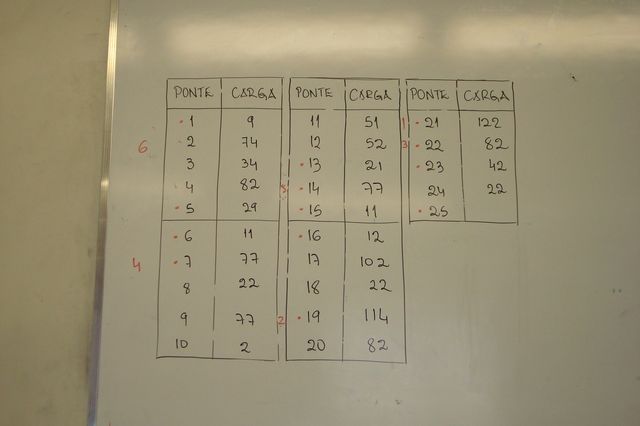 PONTE CARGA PONTE CARGA PONTE CARGA
1 9 11 51 1 21 122
6 2 74 12 52 3 22 82
3 34 13 21 23 42
4 82 14 77 24 22
5 29 15 11 25
6 11 16 12
4 7 77 17 102
8 22 18 22
9 77 2 19 114
10 2 20 82